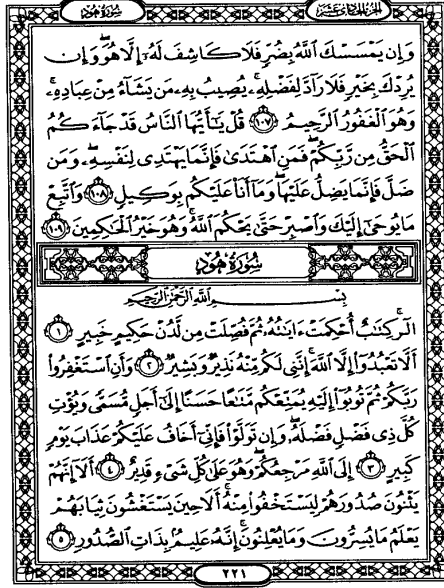 الجزء الحادي عشر
سُورَةُ هُودٍ
وَإِن يَمْسَسْكَ ٱللَّهُ بِضُرٍّ فَلَا كَاشِفَ لَهُۥٓ إِلَّا هُوَ ۖ وَإِن
يُرِدْكَ بِخَيْرٍ فَلَا رَآدَّ لِفَضْلِهِۦ ۚ يُصِيبُ بِهِۦ مَن يَشَآءُ مِنْ عِبَادِهِۦ ۚ
وَهُوَ ٱلْغَفُورُ ٱلرَّحِيمُ ١٠٧ قُلْ يَٰٓأَيُّهَا ٱلنَّاسُ قَدْ جَآءَكُمُ
ٱلْحَقُّ مِن رَّبِّكُمْ ۖ فَمَنِ ٱهْتَدَىٰ فَإِنَّمَا يَهْتَدِى لِنَفْسِهِۦ ۖ وَمَن
ضَلَّ فَإِنَّمَا يَضِلُّ عَلَيْهَا ۖ وَمَآ أَنَا۠ عَلَيْكُم بِوَكِيلٍ ١٠٨ وَٱتَّبِعْ
مَا يُوحَىٰٓ إِلَيْكَ وَٱصْبِرْ حَتَّىٰ يَحْكُمَ ٱللَّهُ ۚ وَهُوَ خَيْرُ ٱلْحَٰكِمِينَ ١٠٩
سُورَةُ هُودٍ
بِسْمِ ٱللَّهِ ٱلرَّحْمَٰنِ ٱلرَّحِيمِ
الٓر ۚ كِتَٰبٌ أُحْكِمَتْ ءَايَٰتُهُۥ ثُمَّ فُصِّلَتْ مِن لَّدُنْ حَكِيمٍ خَبِيرٍ ١
أَلَّا تَعْبُدُوٓا۟ إِلَّا ٱللَّهَ ۚ إِنَّنِى لَكُم مِّنْهُ نَذِيرٌ وَبَشِيرٌ ٢ وَأَنِ ٱسْتَغْفِرُوا۟
رَبَّكُمْ ثُمَّ تُوبُوٓا۟ إِلَيْهِ يُمَتِّعْكُم مَّتَٰعًا حَسَنًا إِلَىٰٓ أَجَلٍ مُّسَمًّى وَيُؤْتِ
كُلَّ ذِى فَضْلٍ فَضْلَهُۥ ۖ وَإِن تَوَلَّوْا۟ فَإِنِّىٓ أَخَافُ عَلَيْكُمْ عَذَابَ يَوْمٍ
كَبِيرٍ ٣ إِلَى ٱللَّهِ مَرْجِعُكُمْ ۖ وَهُوَ عَلَىٰ كُلِّ شَىْءٍ قَدِيرٌ ٤ أَلَآ إِنَّهُمْ
يَثْنُونَ صُدُورَهُمْ لِيَسْتَخْفُوا۟ مِنْهُ ۚ أَلَا حِينَ يَسْتَغْشُونَ ثِيَابَهُمْ
يَعْلَمُ مَا يُسِرُّونَ وَمَا يُعْلِنُونَ ۚ إِنَّهُۥ عَلِيمٌۢ بِذَاتِ ٱلصُّدُورِ ٥
٢٢١